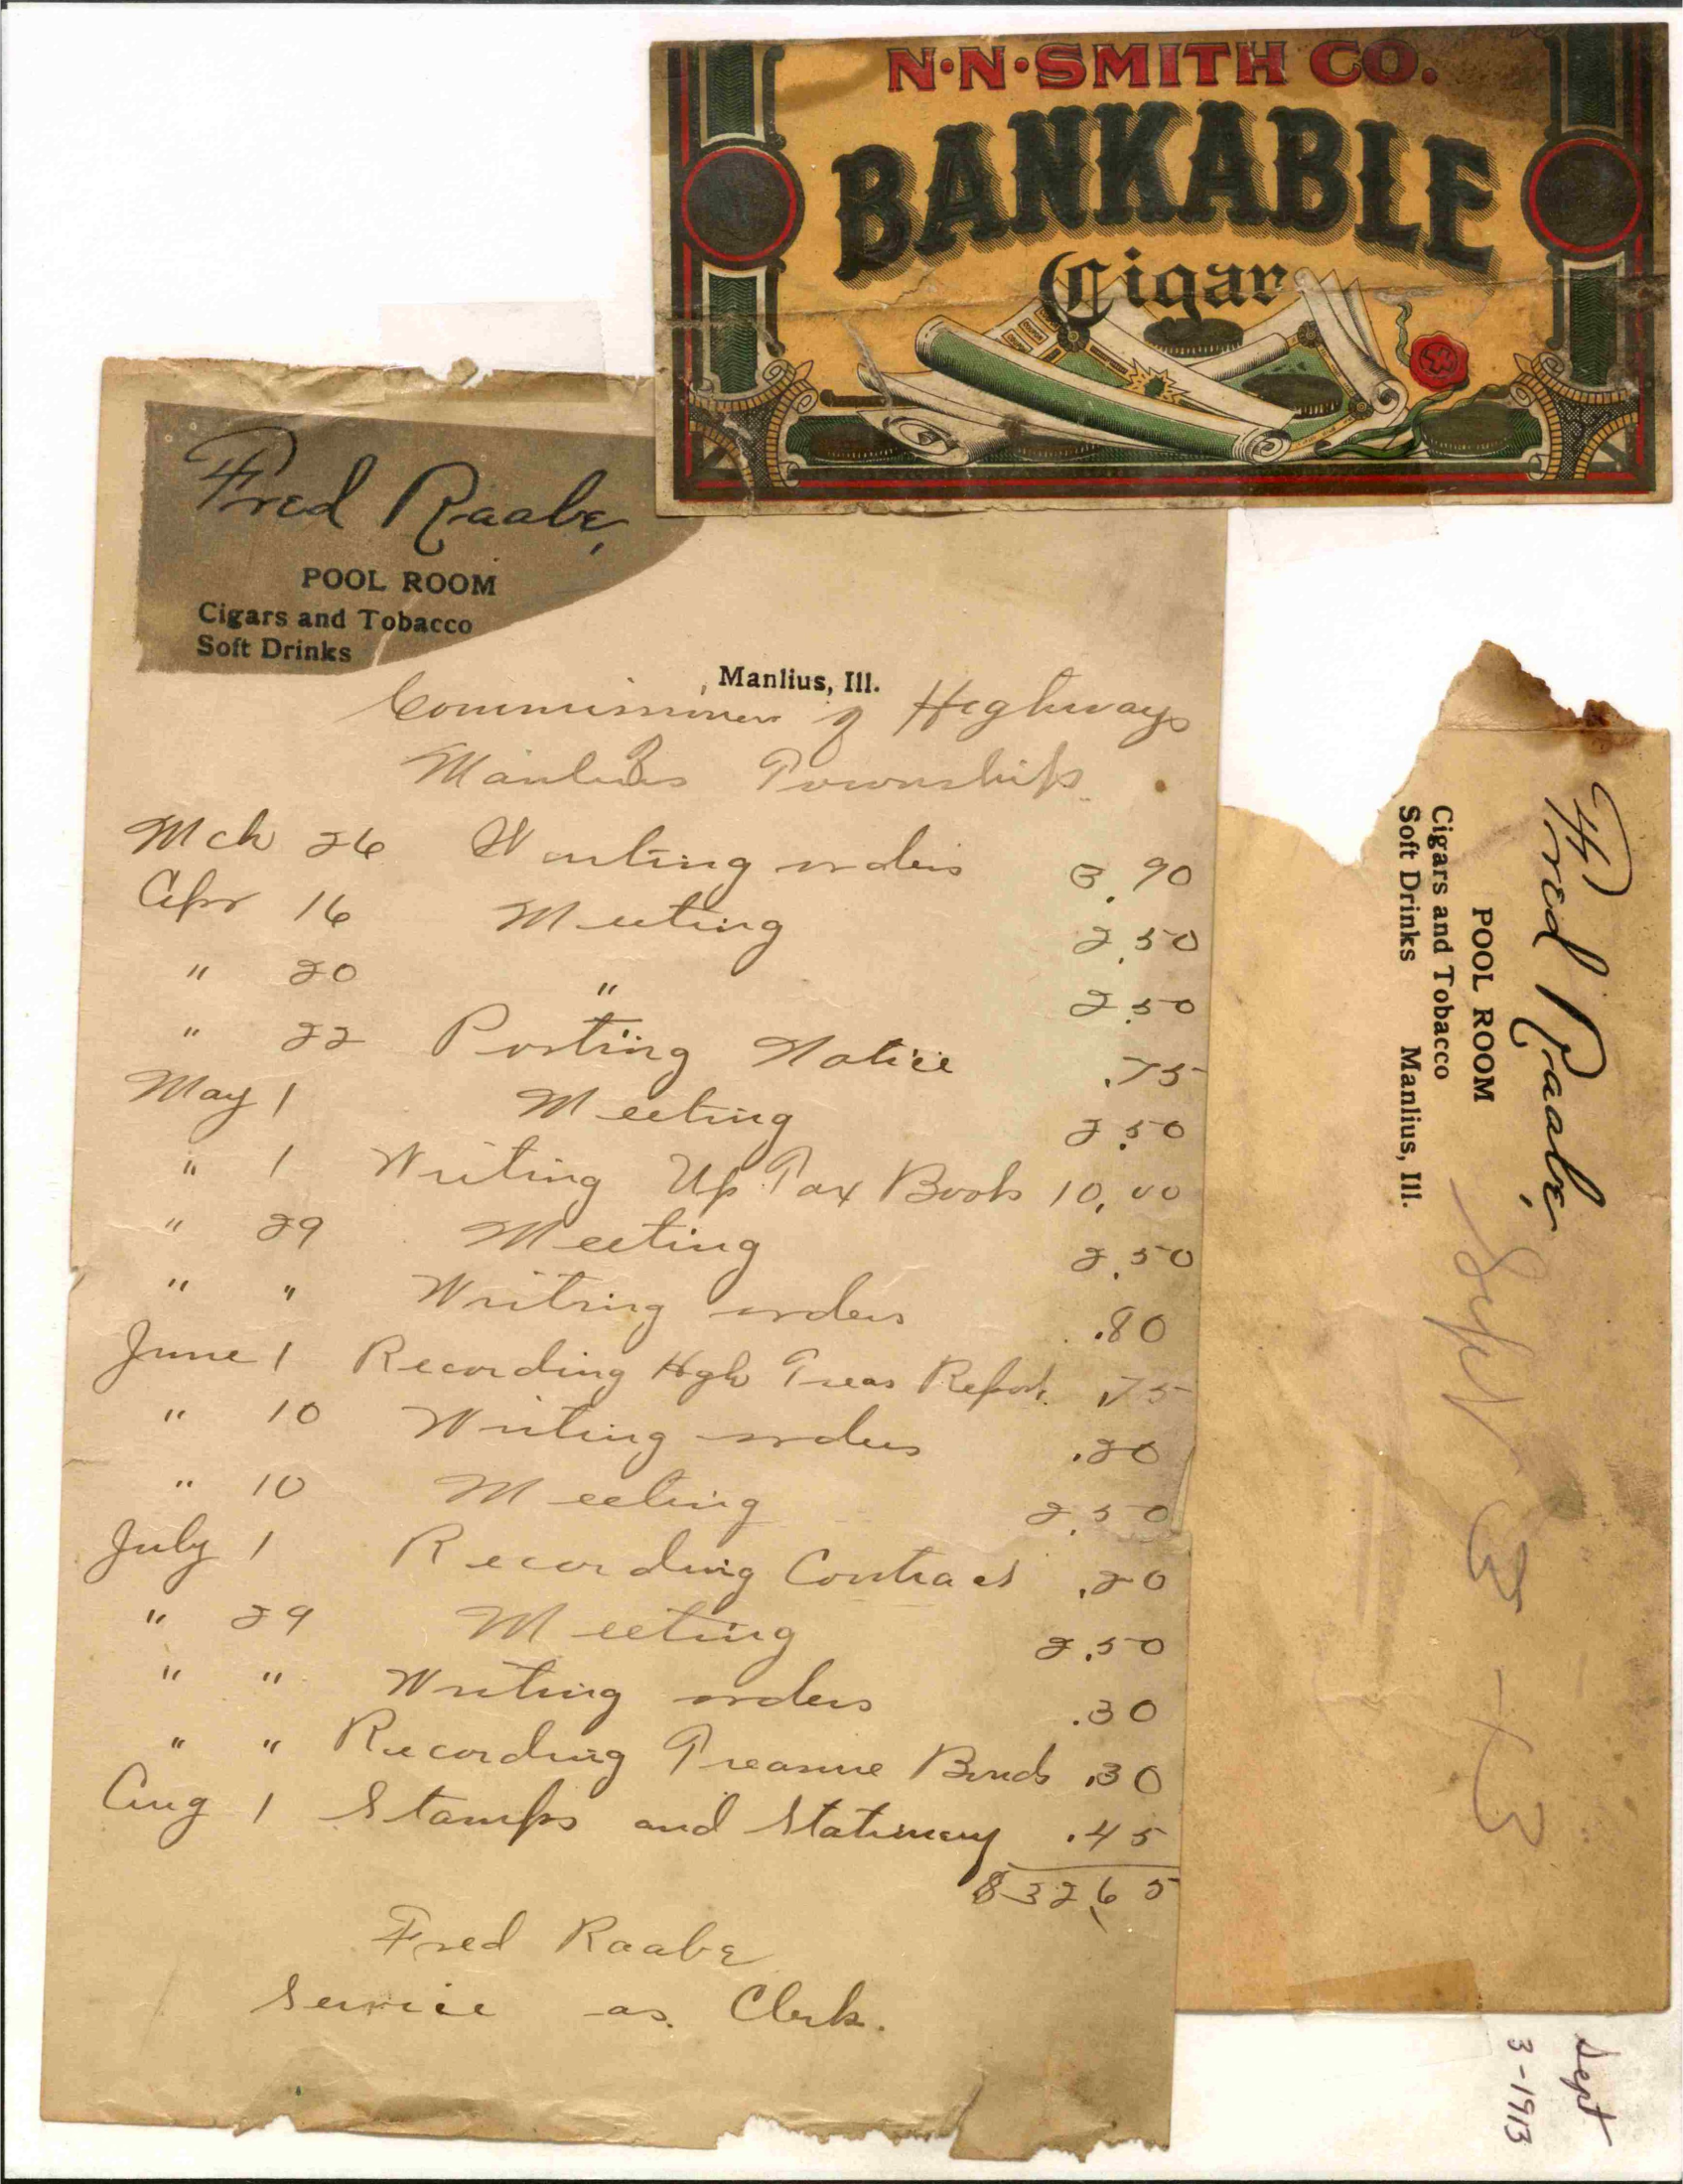 N·N·SMITH CO.
BANKABLE
Cigar
Fred Raabe,
POOL ROOM
Cigars and Tobacco
Soft Drinks
Manlius, Ill.
Commissioner of Highways
Manlius Township
Mch 26 Writing orders 3.90
Apr 16 Meeting 2.50
" 20 " 2.50
" 22 Posting Notice .75
May 1 Meeting 2.50
" 1 Writing Up Tax Books 10.00
" 29 Meeting 2.50
" " Writing orders .80
June 1 Recording Hgh Treas Report. .75
" 10 Writing orders .20
" 10 Meeting 2.50
July 1 Recording Contract .20
" 29 Meeting 2.50
" " Writing orders .30
" " Recording Treasure Bonds .30
Aug 1 Stamps and Stationery .45
$32.65
Fred Raabe
Service as Clerk.
Fred Raabe,
POOL ROOM
Cigars and Tobacco
Soft Drinks Manlius, Ill.
Sept 3 - 13
Sept
3-1913